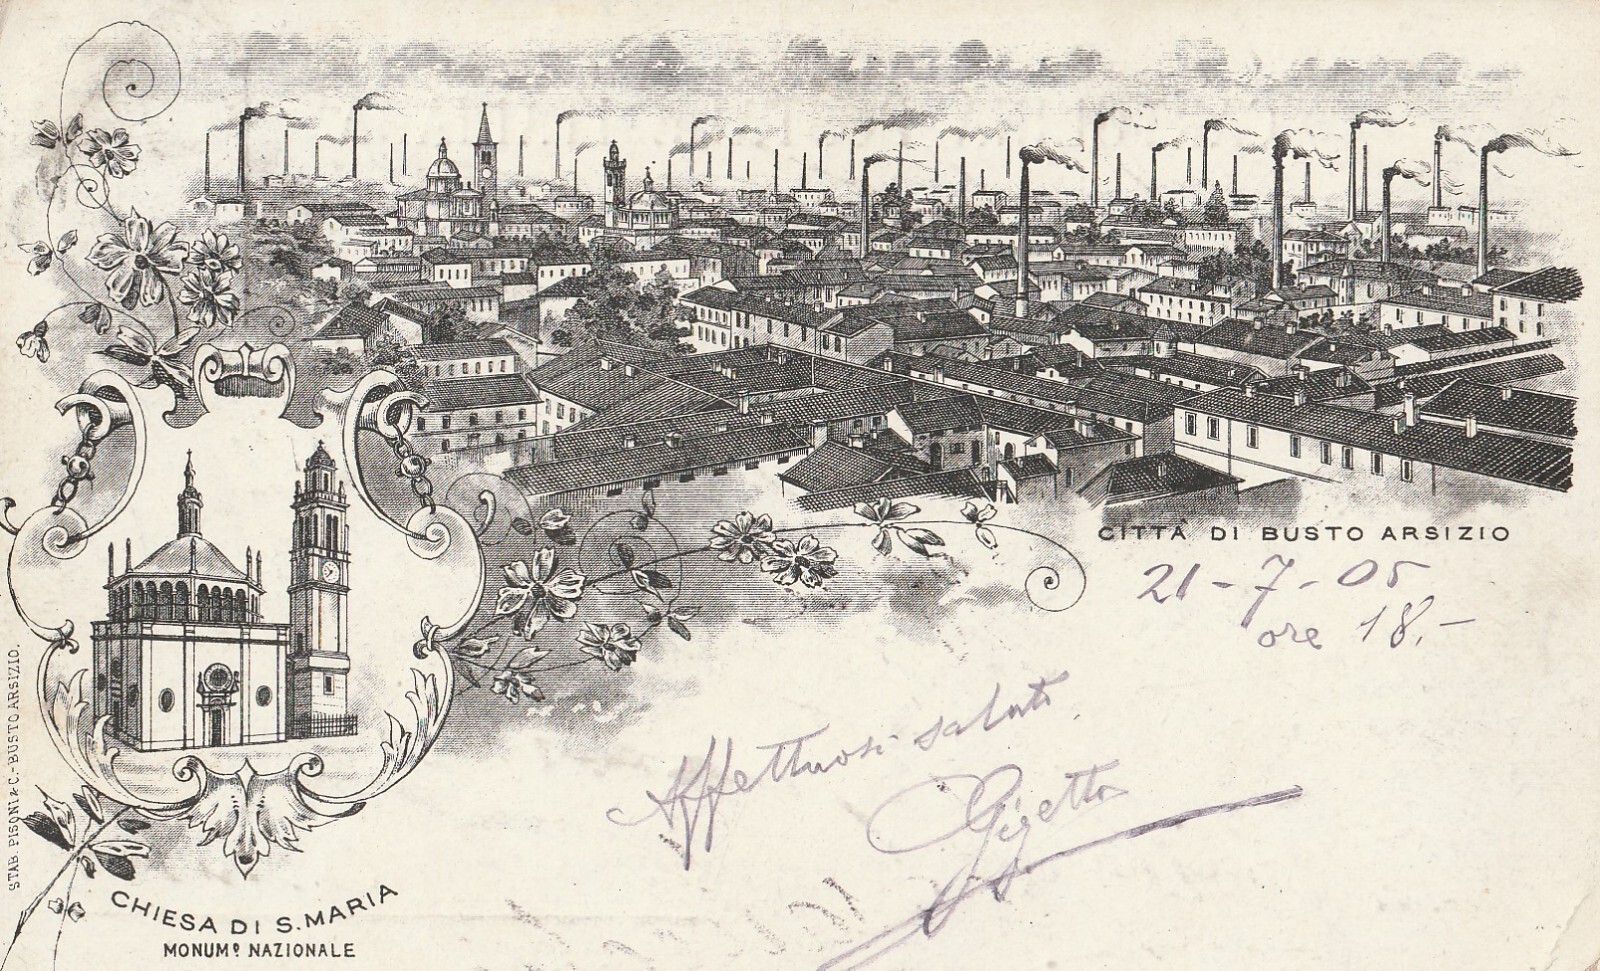 CITTÀ DI BUSTO ARSIZIO
21-7-05
ore 18.-
Affettuosi saluti
Gigetto
CHIESA DI S. MARIA
MONUMº NAZIONALE
STAB. PISONI & C.-BUSTO ARSIZIO.